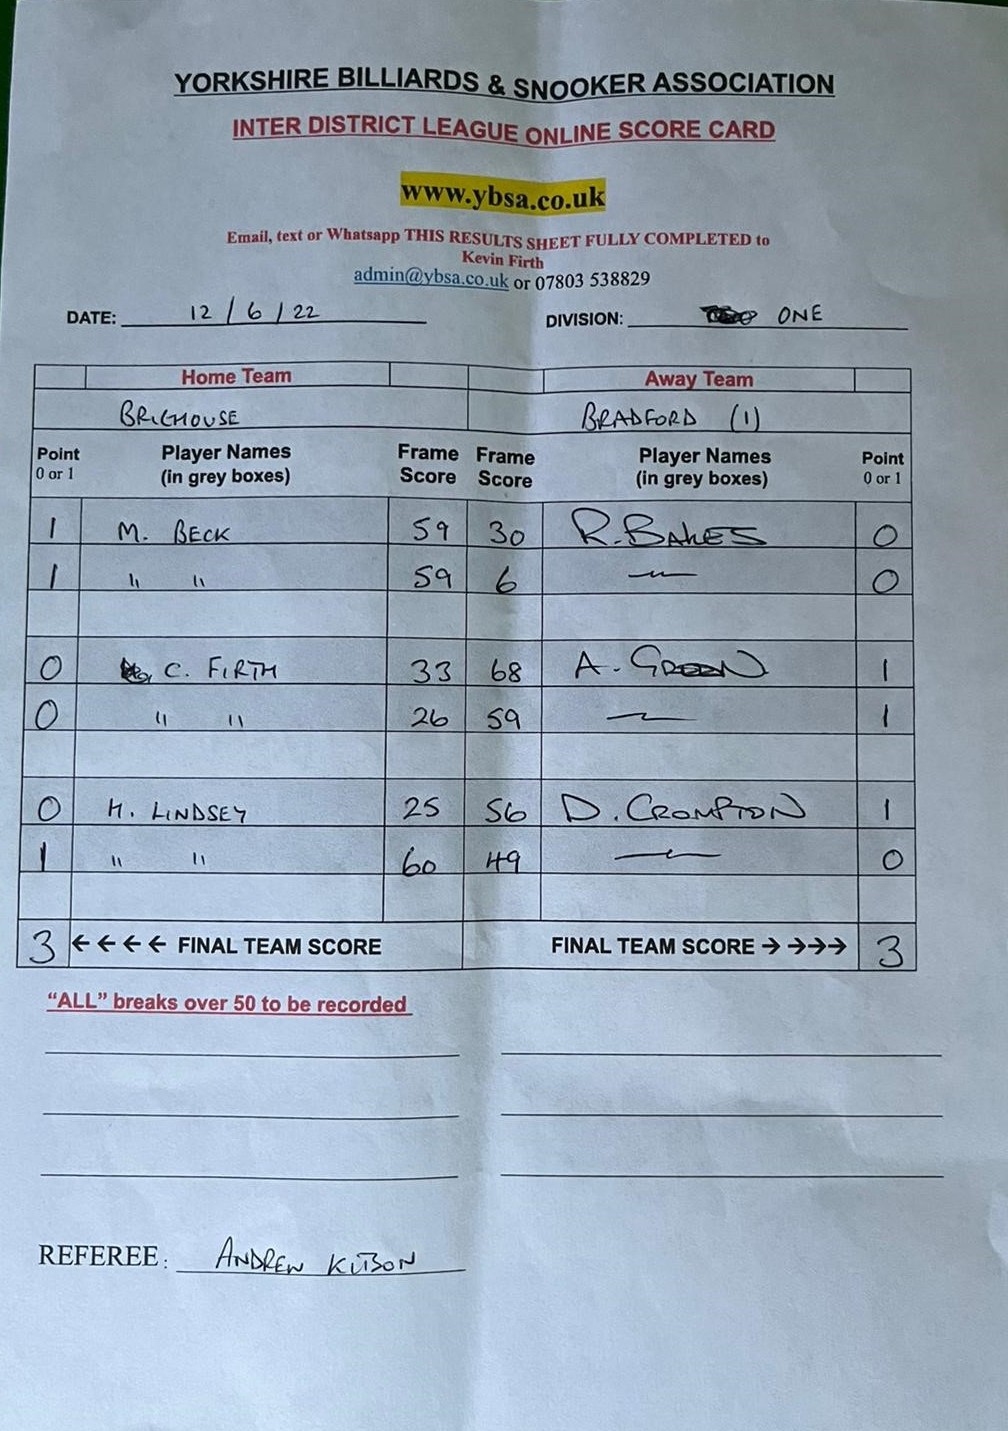 YORKSHIRE BILLIARDS & SNOOKER ASSOCIATION
INTER DISTRICT LEAGUE ONLINE SCORE CARD
www.ybsa.co.uk
Email, text or Whatsapp THIS RESULTS SHEET FULLY COMPLETED to
Kevin Firth
admin@ybsa.co.uk or 07803 538829
DATE: 12 / 6 / 22 DIVISION: ONE
Home Team Away Team
BRIGHOUSE BRADFORD (1)
Point Player Names Frame Frame Player Names Point
0 or 1 (in grey boxes) Score Score (in grey boxes) 0 or 1
1 M. BECK 59 30 R. BAKES 0
1 " " 59 6 0
0 C. FIRTH 33 68 A. GREEN 1
0 " " 26 59 1
0 H. LINDSEY 25 56 D. CROMPTON 1
1 " " 60 49 0
3 ←←←← FINAL TEAM SCORE FINAL TEAM SCORE →→→→ 3
“ALL” breaks over 50 to be recorded
REFEREE: ANDREW KITSON